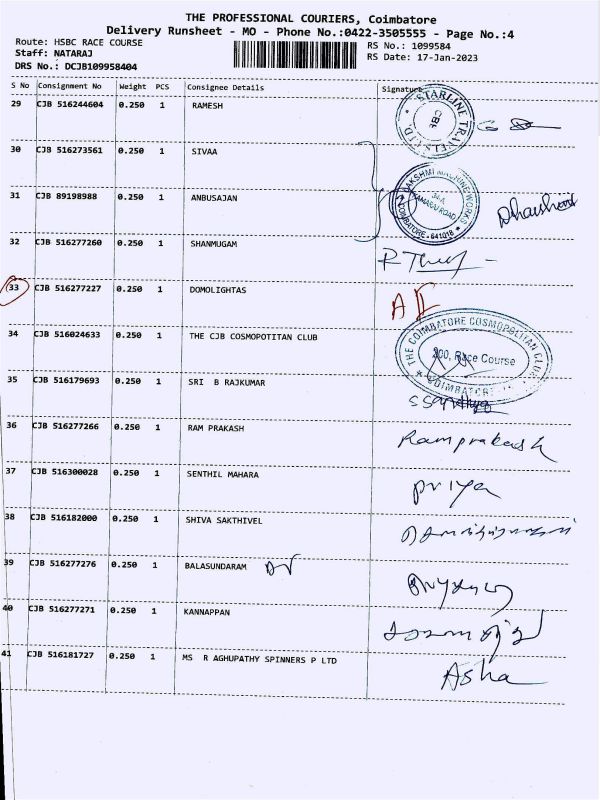 THE PROFESSIONAL COURIERS, Coimbatore
Delivery Runsheet - MO - Phone No.:0422-3505555 - Page No.:4
Route: HSBC RACE COURSE
Staff: NATARAJ
DRS No.: DCJB109958404
RS No.: 1099584
RS Date: 17-Jan-2023
S No Consignment No Weight PCS Consignee Details Signature
29 CJB 516244604 0.250 1 RAMESH
STARLINE TRAVELS
30 CJB 516273561 0.250 1 SIVAA
31 CJB 89198988 0.250 1 ANBUSAJAN
LAKSHMI MACHINEWORKS
34-A
KAMARAJ ROAD
COIMBATORE - 641018
32 CJB 516277260 0.250 1 SHANMUGAM
33 CJB 516277227 0.250 1 DOMOLIGHTAS
34 CJB 516024633 0.250 1 THE CJB COSMOPOTITAN CLUB
THE COIMBATORE COSMOPOLITAN CLUB
Race Course
COIMBATORE
35 CJB 516179693 0.250 1 SRI B RAJKUMAR
36 CJB 516277266 0.250 1 RAM PRAKASH
Ramprakash
37 CJB 516300028 0.250 1 SENTHIL MAHARA
priya
38 CJB 516182000 0.250 1 SHIVA SAKTHIVEL
39 CJB 516277276 0.250 1 BALASUNDARAM
40 CJB 516277271 0.250 1 KANNAPPAN
41 CJB 516181727 0.250 1 MS R AGHUPATHY SPINNERS P LTD
Asha